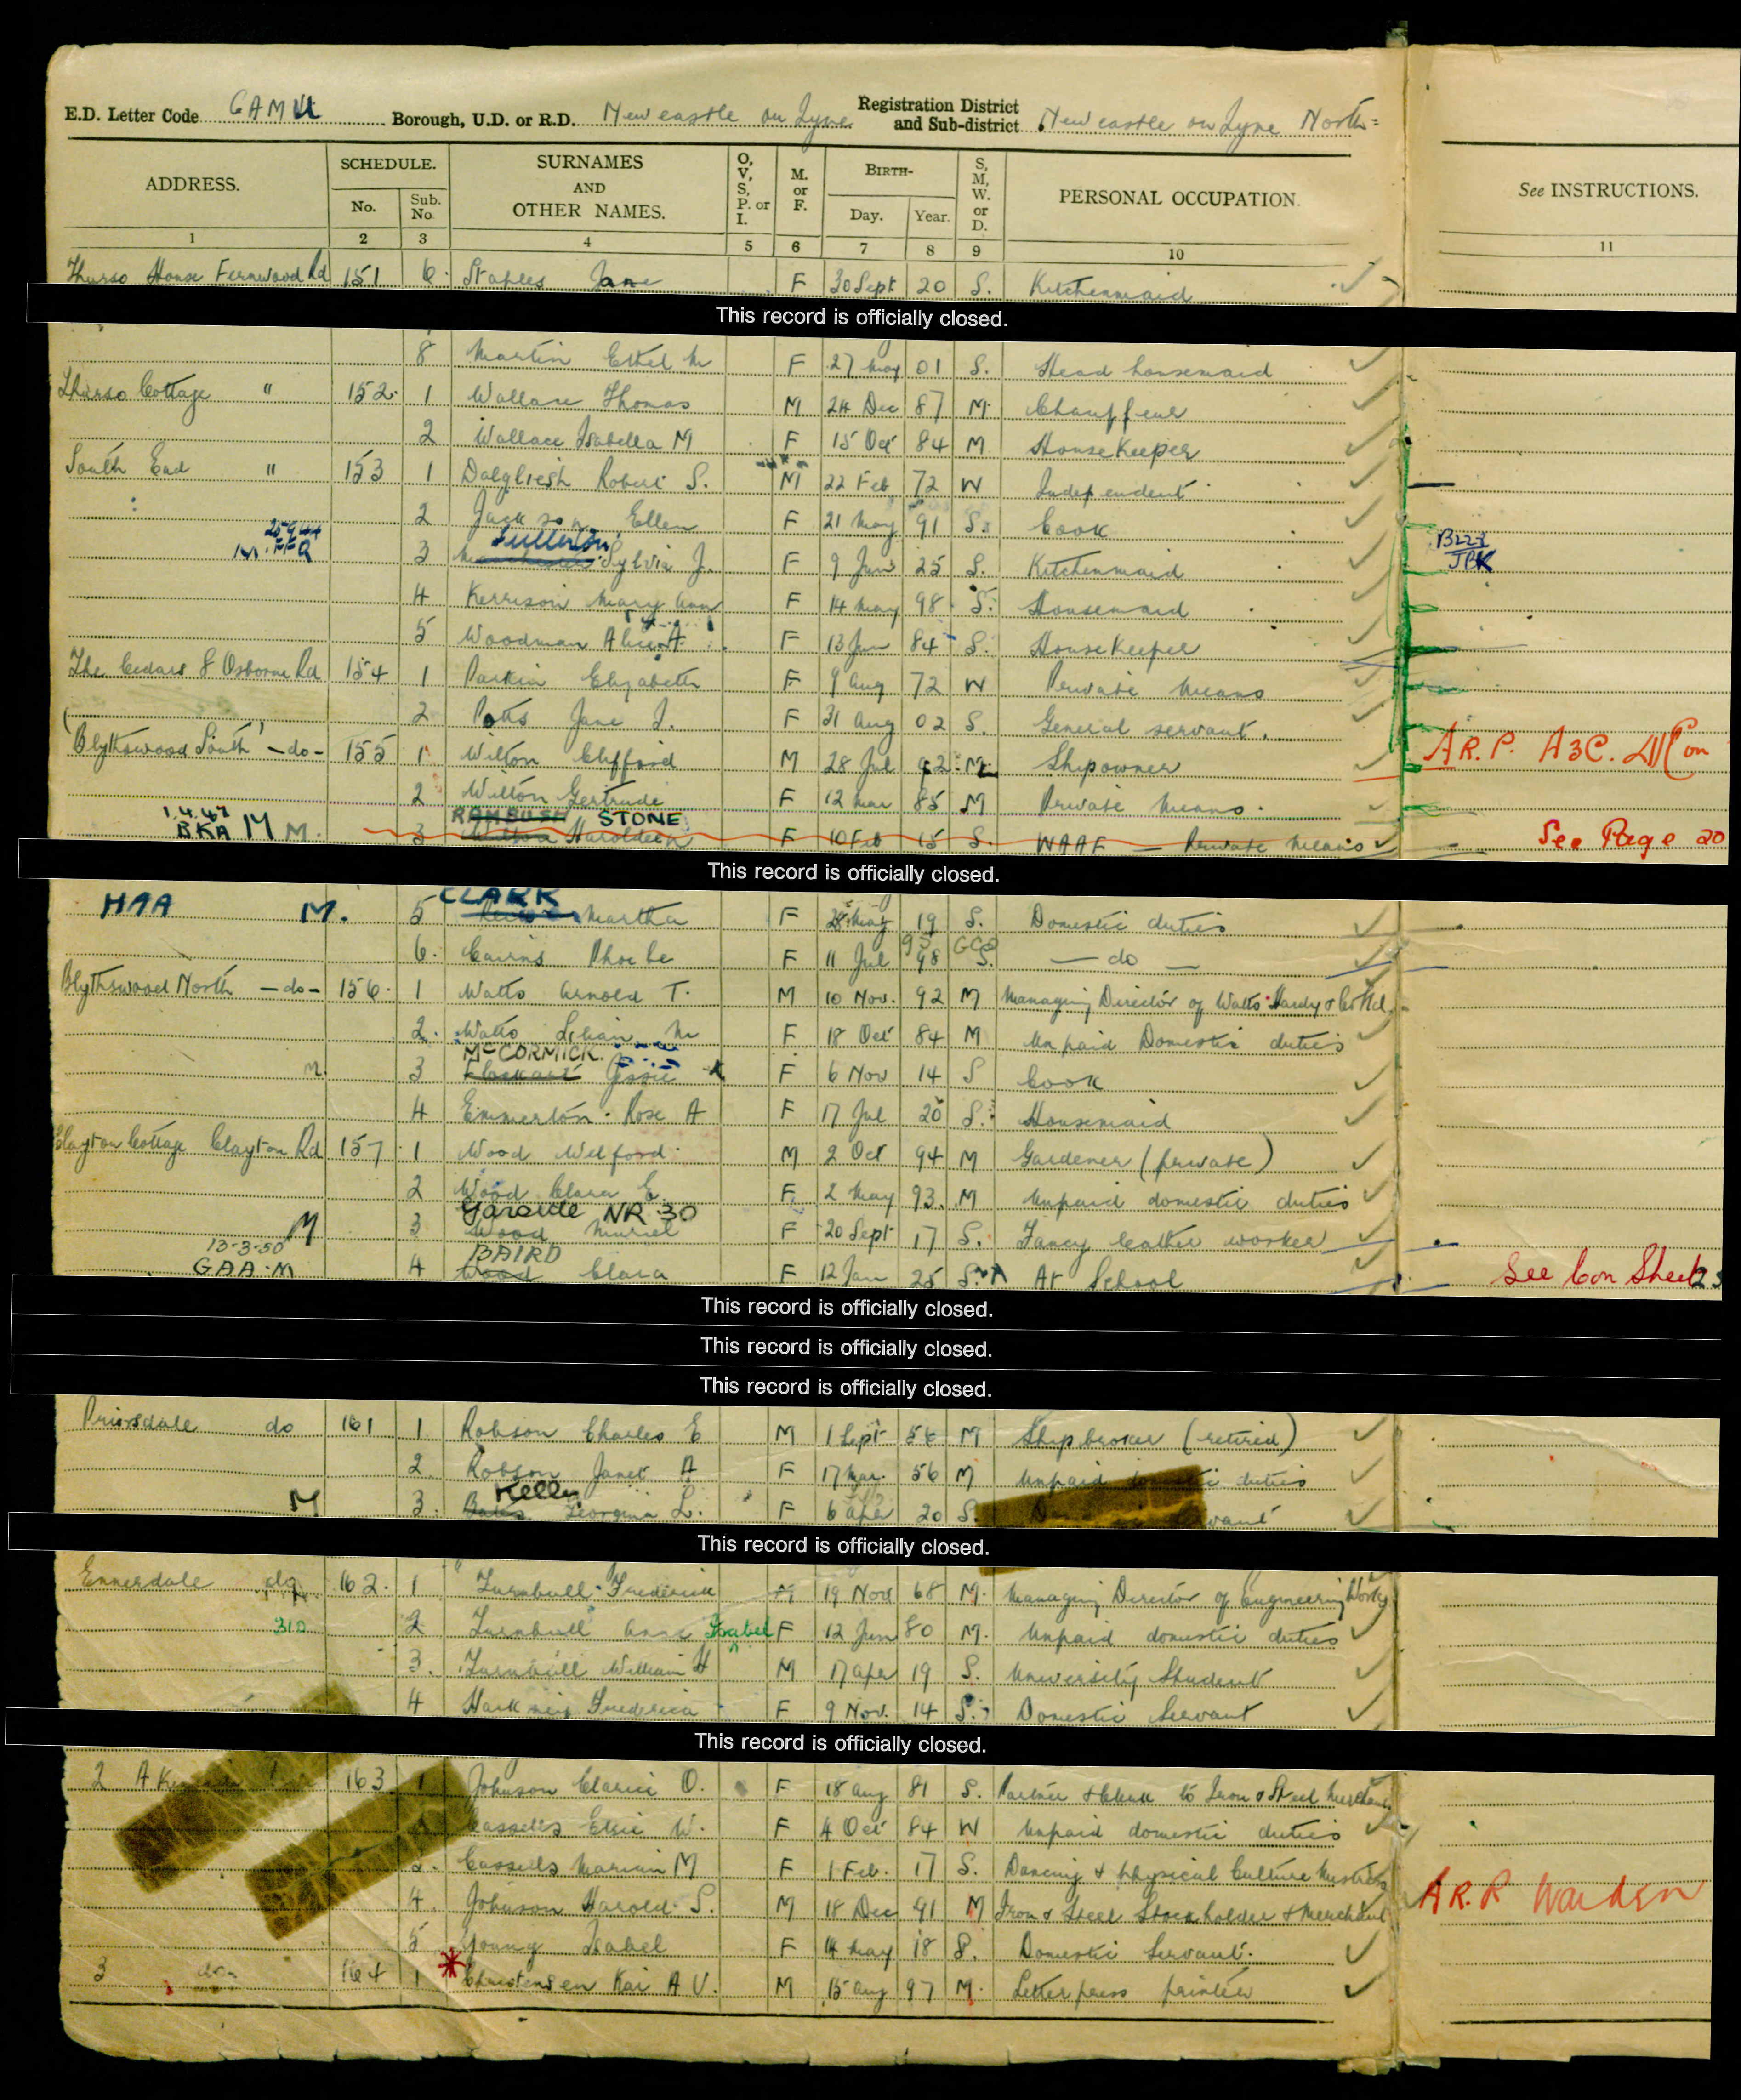 E.D. Letter Code GAMU Borough, U.D. or R.D. Newcastle on Tyne Registration District and Sub-district Newcastle on Tyne North
ADDRESS. SCHEDULE. No. Sub. No. SURNAMES AND OTHER NAMES. O, V, S, P. or I. M. or F. BIRTH- Day. Year. S, M, W. or D. PERSONAL OCCUPATION. See INSTRUCTIONS.
1 2 3 4 5 6 7 8 9 10 11
Thurso House Fernwood Rd 151 6 Staples Jane F 30 Sept 20 S. Kitchenmaid
This record is officially closed.
8 Martin Ethel M F 27 May 01 S. Head housemaid
Thurso Cottage " 152 1 Wallace Thomas M 24 Dec 87 M. Chauffeur
2 Wallace Isabella M F 15 Oct 84 M HouseKeeper
South End " 153 1 Dalgliesh Robert S. M 22 Feb 72 W Independent
2 Jackson Ellen F 21 May 91 S. Cook
3 Sylvia J. F 9 Jun 25 S. Kitchenmaid
4 Kerrison Mary Ann F 14 May 98 S. Housemaid
5 Woodman Alice A. F 13 Jun 84 S. HouseKeeper
The Cedars 8 Osborne Rd 154 1 Parkin Elizabeth F 9 Aug 72 W Private Means
2 Potts Jane J. F 31 Aug 02 S. General servant.
'Blythswood South' -do- 155 1 Wilton Clifford M 28 Jul 82 M Shipowner A.R.P.
2 Wilton Gertrude F 12 Mar 85 M Private Means.
1.4.47 BKA M M. STONE
3 Wilton Haroldeen F 10 Feb 15 S. WAAF — Private Means See Page 20
This record is officially closed.
HAA M. CLARK
5 Martha F 28 May 19 S. Domestic duties
6. Cairns Phoebe F 11 Jul 98 S. — do —
Blythswood North -do- 156 1 Watts Arnold T. M 10 Nov. 92 M Managing Director of Watts Hardy & Co Ltd.
2. Watts Lilian M F 18 Oct 84 M Unpaid Domestic duties
McCORMICK
M 3 Jessie F 6 Nov 14 S Cook
4 Emmerton Rose A F 17 Jul 20 S. Housemaid
Clayton Cottage Clayton Rd 157 1 Wood Wilford M 2 Oct 94 M Gardener (private)
2 Wood Clara E. F 2 May 93. M Unpaid domestic duties
NR 30
M 3 Wood Muriel F 20 Sept 17 S. Fancy leather worker
13-3-50 BAIRD
GAA.M 4 Wood Clara F 12 Jan 25 S. At School See Con Sheet
This record is officially closed.
This record is officially closed.
This record is officially closed.
Priorsdale do 161 1 Robson Charles E M 1 Sept 56 M Shipbroker (retired)
2. Robson Janet A F 17 Mar. 56 M Unpaid domestic duties
Kelly
M 3. Georgina L. F 6 Apr 20 S.
This record is officially closed.
Ennerdale do 162. 1 Turnbull Frederick M 19 Nov 68 M. Managing Director of Engineering Works
2 Turnbull Anne Isabel F 12 Jun 80 M. Unpaid domestic duties
3. Turnbull William H M 17 Apr 19 S. University Student
4 Frederica F 9 Nov. 14 S. Domestic Servant
This record is officially closed.
2 163 1 Johnson Clarice O. F 18 Aug 81 S. Partner & Clerk to Iron & Steel Merchants
Cassells Elsie W. F 4 Oct 84 W Unpaid domestic duties
Cassells Marian M F 1 Feb. 17 S. Dancing & physical Culture Mistress
4. Johnson Harold S. M 18 Dec 91 M Iron & Steel Stockholder & Merchant A.R.P. Warden
5 Young Isabel F 14 May 18 S. Domestic Servant.
3 do 164 1 Christensen Kai A V. M 15 Aug 97 M. Letterpress printer